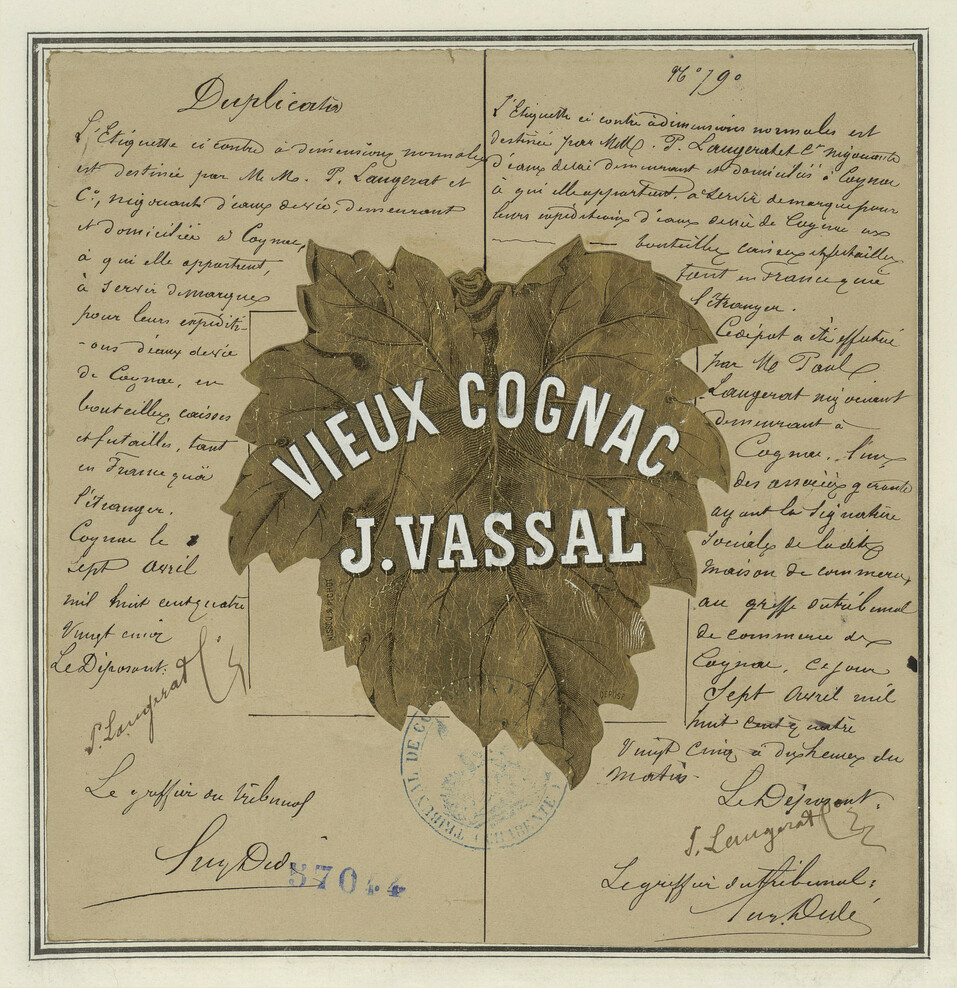 Duplicata
L'Etiquette ci contre à dimensions normales
est destinée par M.M. P. Laugerat et
Cie, négociants d'eaux de vie, demeurant
et domiciliés à Cognac,
à qui elle appartient,
à servir de marque
pour leurs expediti-
-ons d'eaux de vie
de Cognac, en
bouteilles, caisses
et futailles, tant
en France qu'à
l'étranger.
Cognac le
Sept Avril
mil huit cent quatre
Vingt cinq
Le Déposant:
P. Laugerat
Le greffier du Tribunal
87044
VIEUX COGNAC
J. VASSAL
DÉPOSÉ
TRIBUNAL DE CO
CHARENTE
N° 790
L'Etiquette ci contre à dimensions normales est
destinée par MM. P. Laugerat et Cie négociants
d'eaux de vie demeurant et domiciliés à Cognac
à qui elle appartient, à servir de marque pour
leurs expeditions d'eaux de vie de Cognac en
bouteilles caisses et futailles
tant en France qu'à
l'étranger.
Ce dépot a été effectué
par M. Paul
Laugerat négociant
demeurant à
Cognac, l'un
des associés gérants
ayant la signature
sociale de la dite
maison de commerce,
au greffe du tribunal
de commerce de
Cognac, ce jour
Sept Avril mil
huit cent quatre
Vingt cinq à dix heures du
matin.
Le Déposant:
P. Laugerat
Le greffier du tribunal: